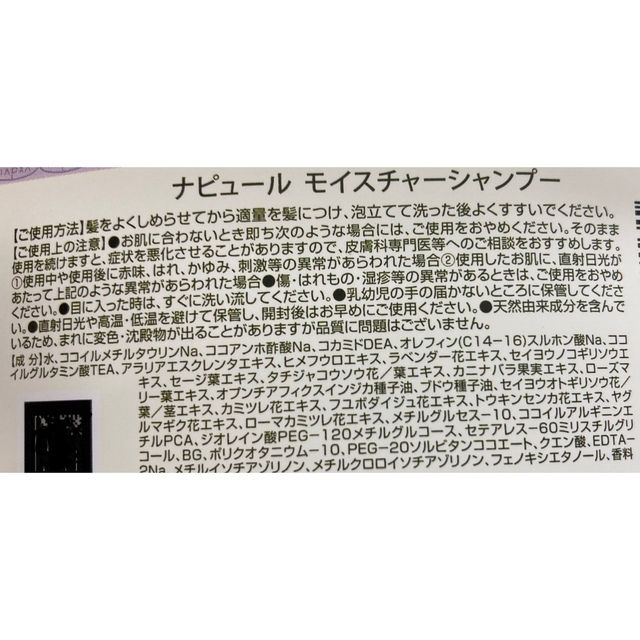 ナピュール モイスチャーシャンプー
【ご使用方法】髪をよくしめらせてから適量を髪につけ、泡立てて洗った後よくすすいでください。
【ご使用上の注意】●お肌に合わないとき即ち次のような場合には、ご使用をおやめください。そのまま
使用を続けますと、症状を悪化させることがありますので、皮膚科専門医等へのご相談をおすすめします。
①使用中や使用後に赤味、はれ、かゆみ、刺激等の異常があらわれた場合②使用したお肌に、直射日光が
あたって上記のような異常があらわれた場合●傷・はれもの・湿疹等の異常があるときは、ご使用をおやめ
ください。●目に入った時は、すぐに洗い流してください。●乳幼児の手の届かないところに保管してくださ
い。●直射日光や高温・低温を避けて保管し、開封後はお早めにご使用ください。●天然由来成分を含んで
いるため、まれに変色・沈殿物が出ることがありますが品質に問題はございません。
【成分】水、ココイルメチルタウリンNa、ココアンホ酢酸Na、コカミドDEA、オレフィン(C14-16)スルホン酸Na、ココ
イルグルタミン酸TEA、アラリアエスクレンタエキス、ヒメフウロエキス、ラベンダー花エキス、セイヨウノコギリソウエ
キス、セージ葉エキス、タチジャコウソウ花/葉エキス、カニナバラ果実エキス、ローズマ
リー葉エキス、オプンチアフィクスインジカ種子油、ブドウ種子油、セイヨウオトギリソウ花/
葉/茎エキス、カミツレ花エキス、フユボダイジュ花エキス、トウキンセンカ花エキス、ヤグ
ルマギク花エキス、ローマカミツレ花エキス、メチルグルセス-10、ココイルアルギニンエ
チルPCA、ジオレイン酸PEG-120メチルグルコース、セテアレス-60ミリスチルグリ
コール、BG、ポリクオタニウム-10、PEG-20ソルビタンココエート、クエン酸、EDTA-
2Na、メチルイソチアゾリノン、メチルクロロイソチアゾリノン、フェノキシエタノール、香料